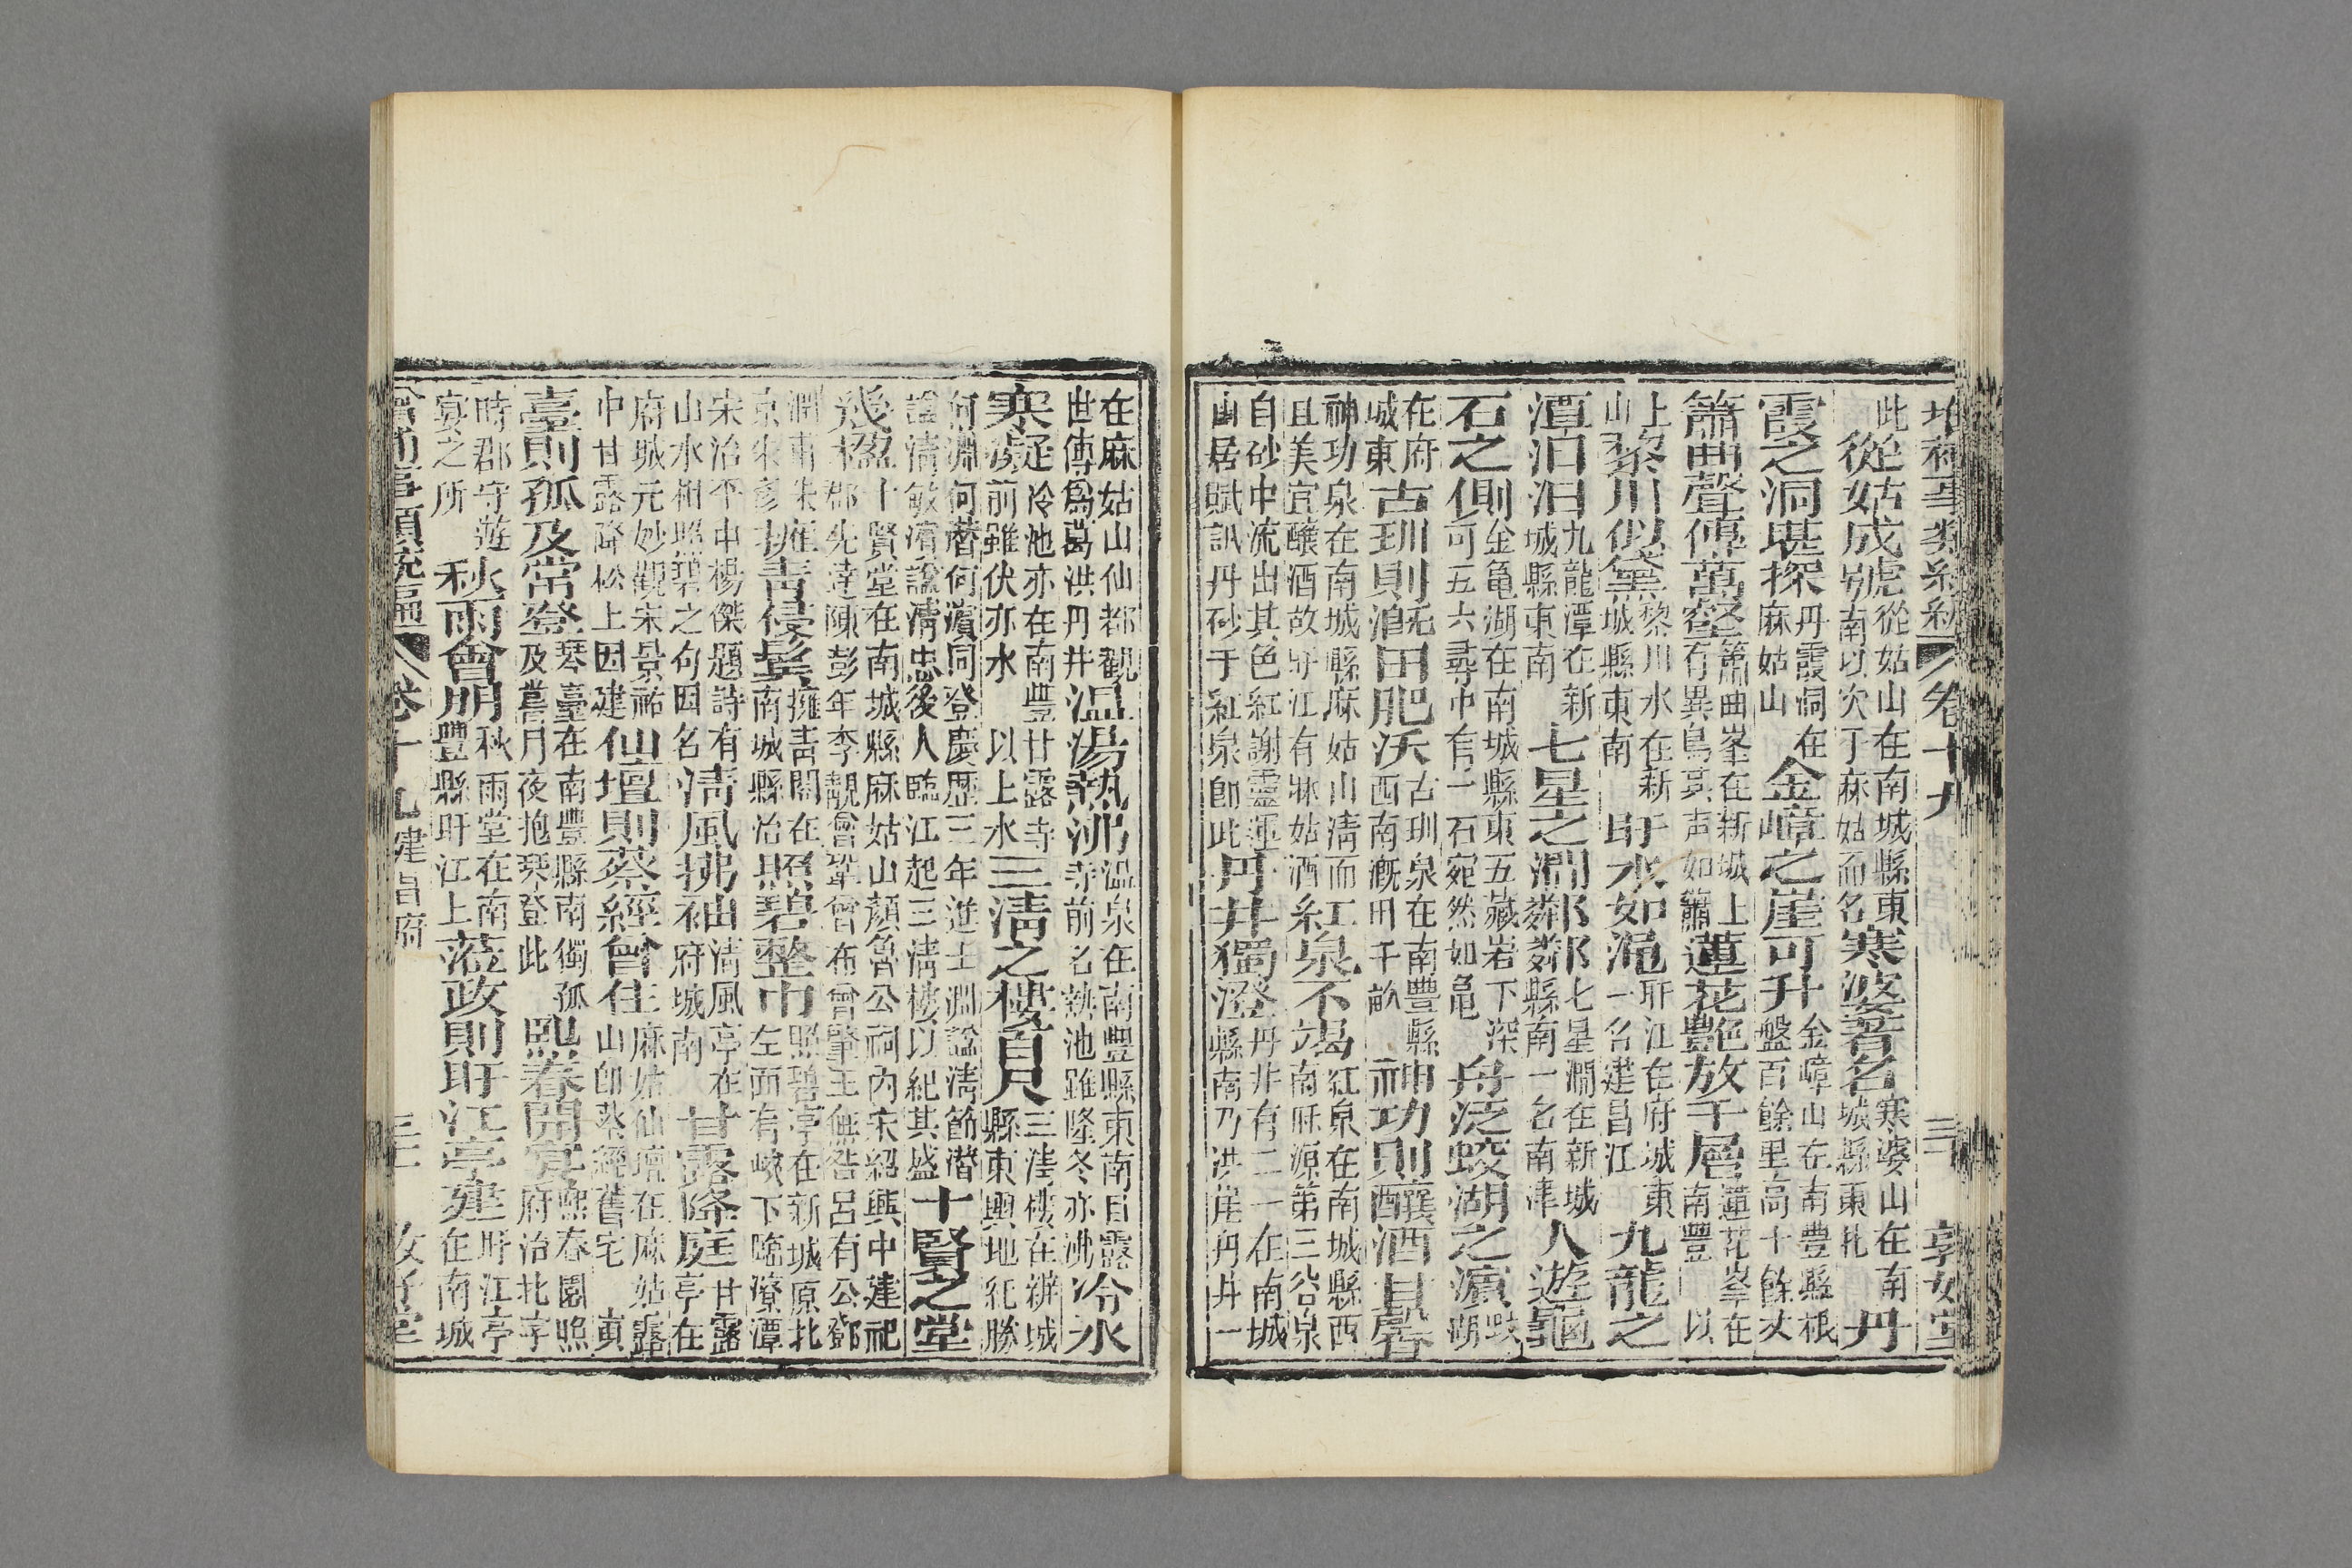 卷十九
三十
此從姑成號從姑山在南城縣東南以次于麻姑而名寒婆著名寒婆山在南城縣東北丹
霞之洞堪探丹霞洞在麻姑山金嶂之崖可升金嶂山在南豐縣根盤百餘里高十餘丈
簫曲聲傳萬壑簫曲峯在新城上有異鳥其声如簫蓮花艷放千層蓮花峯在南豐以
上山黎川似黛黎川水在新城縣東南盱水如澠盱江在府城東一名建昌江九龍之
潭汩汩九龍潭在新城縣東南七星之澗鄰鄰七星澗在新城縣南一名南津人遊龜
石之側金龜湖在南城縣東五藏岩下深可五六尋中有一石宛然如龜舟泛蛟湖之濱蛟湖
在府城東古圳則田肥沃古圳泉在南豐縣西南漑田千畝神功則釀酒甘馨
神功泉在南城縣麻姑山清而且美宜釀酒故盱江有麻姑酒紅泉不竭紅泉在南城縣西南麻源第三谷泉
自砂中流出其色紅謝靈運山居賦訊丹砂于紅泉卽此丹井獨澄丹井有二一在南城縣南乃洪崖丹井一
在麻姑山仙都觀世傳爲葛洪丹井温湯熱沸温泉在南豐縣東南甘露寺前名熱池雖隆冬亦沸冷水
寒凝冷池亦在南豐甘露寺前雖伏亦水以上水三清之樓百尺三清樓在縣東輿地紀勝
何淵何潛何濱同登慶歷三年進士淵諡清節潛諡清敏濱諡清忠後人臨江起三清樓以紀其盛十賢之堂
幾楹十賢堂在南城縣麻姑山顔魯公祠內宋紹興中建祀郡先達陳彭年李覯曾鞏曾布曾肇王無咎呂有公鄧
擁青侵鬓擁青閣在南城縣治照碧整巾照碧亭在新城原北左而有峻下臨潦潭
宋治平中楊傑題詩有山水相照碧之句因名清風拂袖清風亭在府城南甘露降庭甘露亭在
府城元妙觀宋景祐中甘露降松上因建仙壇則蔡經曾住麻姑仙壇在麻姑山卽蔡經舊宅
臺則孤及常登琴臺在南豐縣南獨孤及嘗月夜抱琴登此熙春開宴熙春園在府治北宋
時郡守遊宴之所秋雨會朋秋雨堂在南豐縣盱江上蒞政則盱江亭建盱江亭在南城
卷十九建昌府